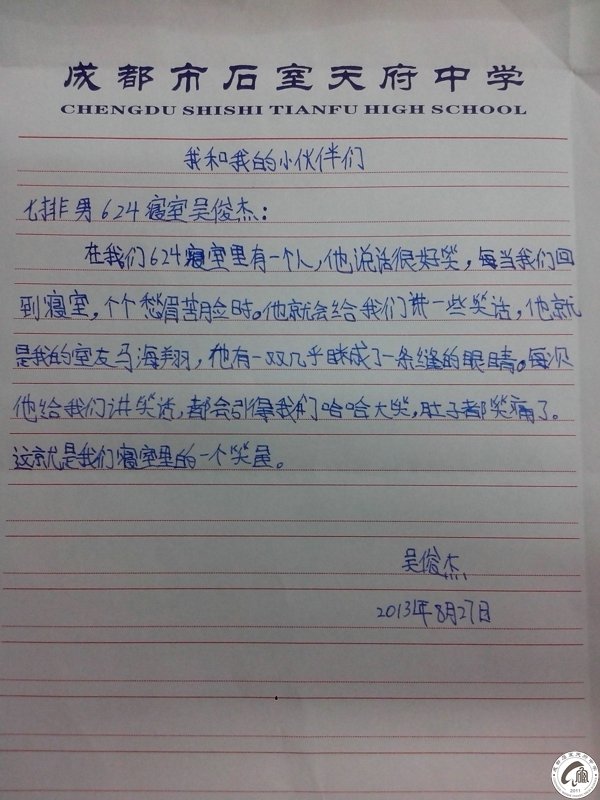 成都市石室天府中学
CHENGDU SHISHI TIANFU HIGH SCHOOL
我和我的小伙伴们
七排男624寝室吴俊杰：
在我们624寝室里有一个人，他说话很好笑，每当我们回
到寝室，个个愁眉苦脸时。他就会给我们讲一些笑话，他就
是我的室友马海翔，他有一双几乎眯成了一条缝的眼睛。每次
他给我们讲笑话，都会引得我们哈哈大笑，肚子都笑痛了。
这就是我们寝室里的一个笑星。
吴俊杰
2013年8月27日
2011